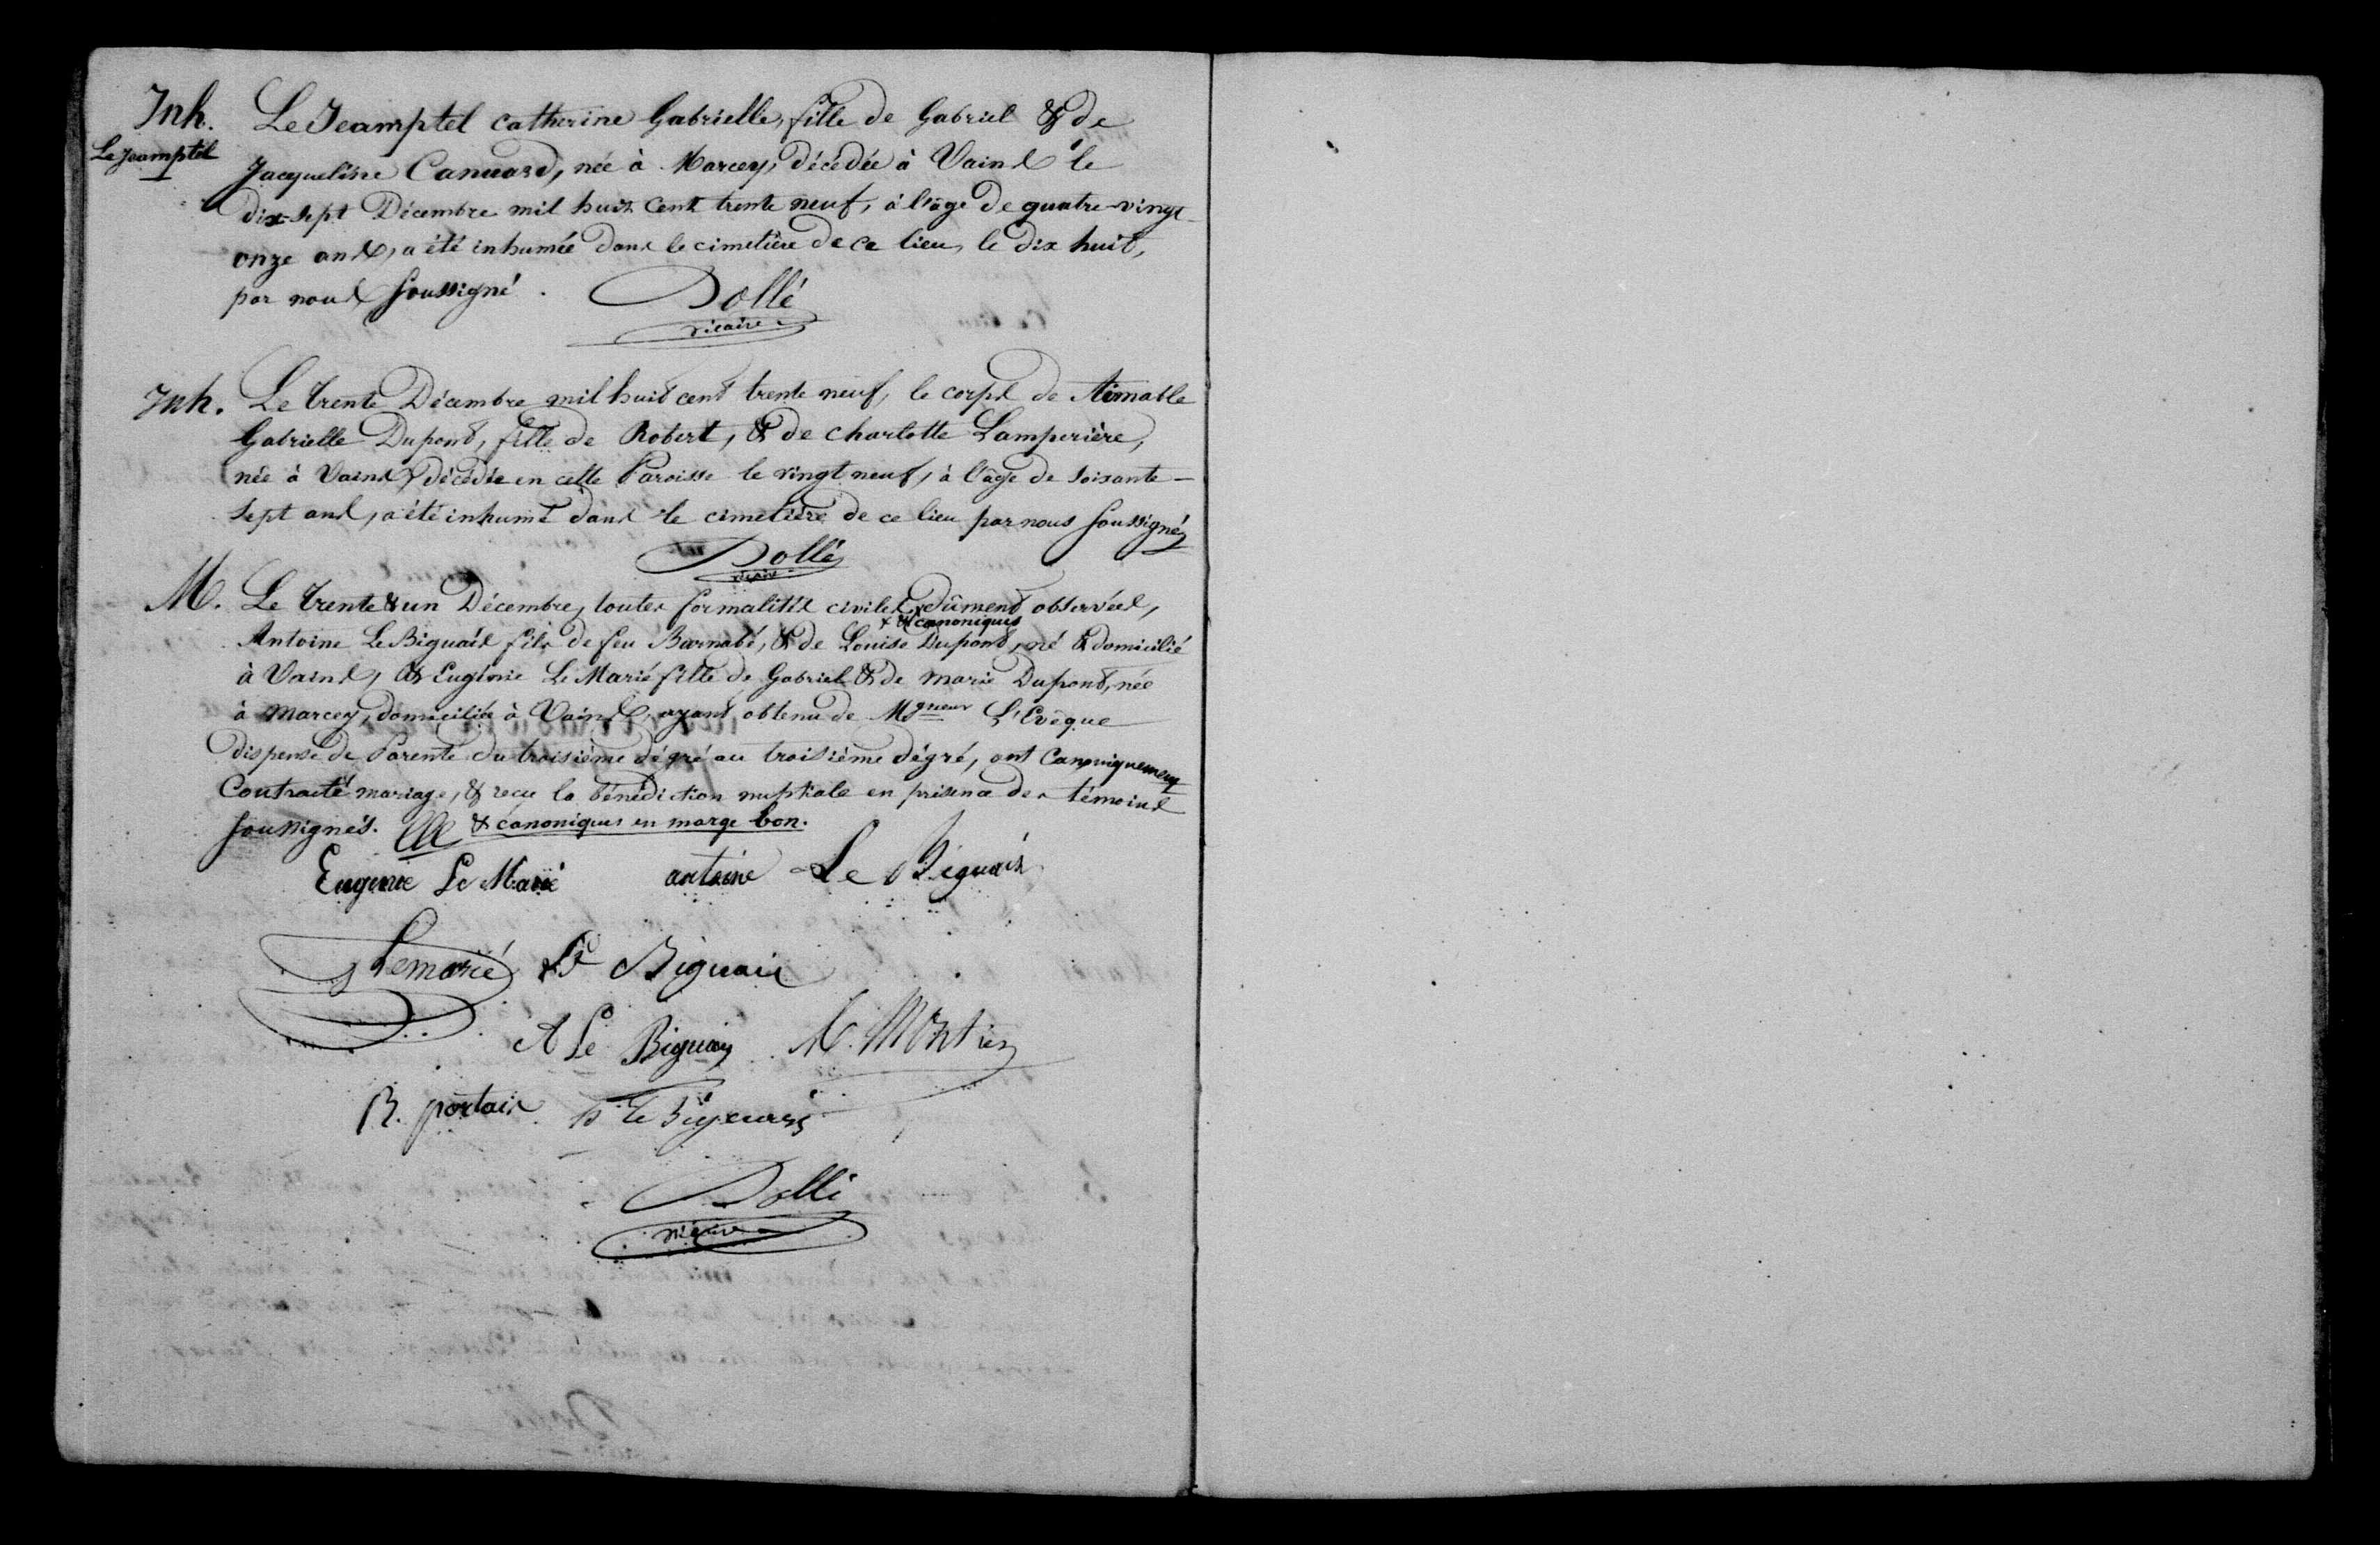 Inh. Le Jeamptel catherine Gabrielle, fille de Gabriel & de
Le Jeamptel
Jacqueline Canuard, née à Marcey, décédée à Vains le
dix-sept Décembre mil huit cent trente neuf, à l'âge de quatre-vingt
onze ans, a été inhumée dans le cimetière de ce lieu, le dix huit,
par nous soussigné.
Dollé
vicaire
Inh. Le trente Décembre mil huit cent trente neuf, le corps de Aimable
Gabrielle Dupont, fille de Robert, & de charlotte Lamperière,
née à Vains, décédée en cette Paroisse le vingt neuf, à l'âge de soixante-
sept ans, a été inhumé dans le cimetière de ce lieu par nous soussignés
Dollé
vicaire
M. Le trente & un Décembre, toutes formalités civiles x dûment observées,
x & canoniques
Antoine Le Biguais fils de feu Barnabé, & de Louise Dupont, né & domicilié
à Vains, & Eugénie Le Marié fille de Gabriel & de marie Dupont, née
à Marcey, domiciliée à Vains, ayant obtenu de Mgneur L'Evêque
dispense de Parenté du troisième dégré au troisième dégré, ont Canoniquement
Contracté mariage, & reçu la bénédiction nuptiale en présence des témoins
soussignés. & canoniques en marge bon.
Eugenie Le Marié antoine Le Biguais
Lemarié Le Biguais
A Le Biguais M. Montier
B. portais Le Biguais
Dollé
vicaire